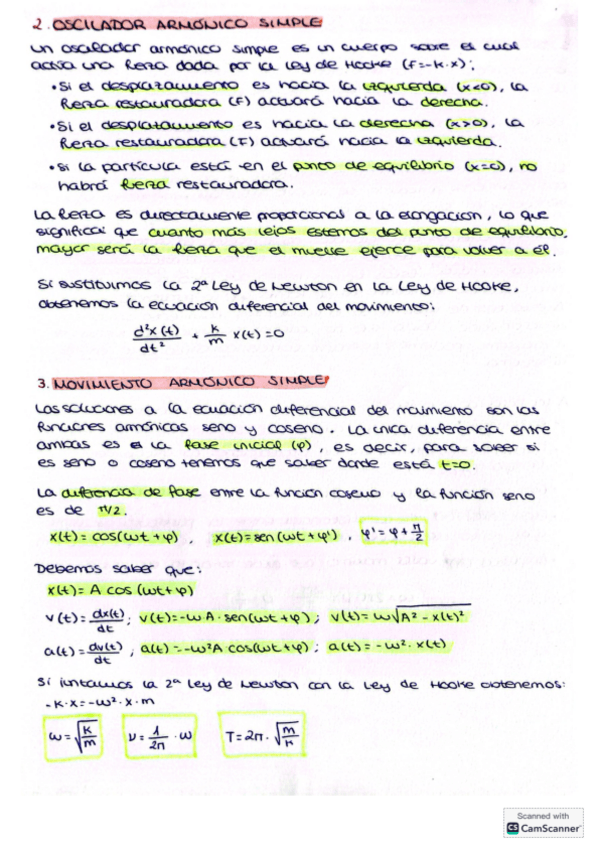 2. OSCILADOR ARMÓNICO SIMPLE
Un oscilador armónico simple es un cuerpo sobre el cual
actúa una fuerza dada por la ley de Hooke (F=-K·x):
• Si el desplazamiento es hacia la izquierda (x<0), la
fuerza restauradora (F) actuará hacia la derecha.
• Si el desplazamiento es hacia la derecha (x>0), la
fuerza restauradora (F) actuará hacia la izquierda.
• Si la partícula está en el punto de equilibrio (x=0), no
habrá fuerza restauradora.
La fuerza es directamente proporcional a la elongación, lo que
significa que cuanto más lejos estemos del punto de equilibrio,
mayor será la fuerza que el muelle ejerce para volver a él.
Si sustituimos la 2ª Ley de Newton en la Ley de Hooke,
obtenemos la ecuación diferencial del movimiento:
d²x(t)/dt² + k/m x(t)=0
3. MOVIMIENTO ARMÓNICO SIMPLE
Las soluciones a la ecuación diferencial del movimiento son las
funciones armónicas seno y coseno. La única diferencia entre
ambas es la fase inicial (φ), es decir, para saber si
es seno o coseno tenemos que saber donde está t=0.
La diferencia de fase entre la función coseno y la función seno
es de π/2.
x(t)=cos(ωt+φ), x(t)=sen(ωt+φ'), φ'=φ+π/2
Debemos saber que:
x(t)=A cos(ωt+φ)
v(t)=dx(t)/dt; v(t)=-ωA·sen(ωt+φ); v(t)=ω√(A²-x(t)²)
a(t)=dv(t)/dt; a(t)=-ω²A cos(ωt+φ); a(t)=-ω²·x(t)
Si juntamos la 2ª Ley de Newton con la Ley de Hooke obtenemos:
-K·x=-ω²·x·m
ω=√(K/m) ν=1/2π·ω T=2π·√(m/K)
Scanned with
CS CamScanner